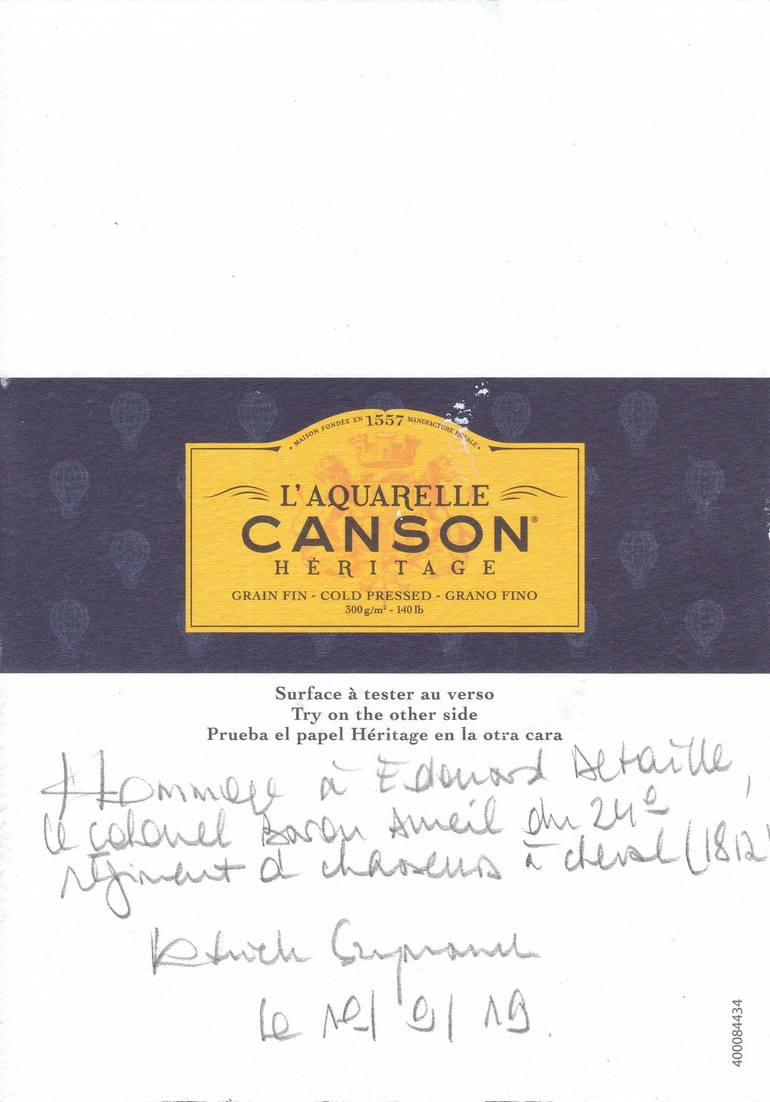 MAISON FONDÉE EN 1557 MANUFACTURE ROYALE
L'AQUARELLE
CANSON®
HÉRITAGE
GRAIN FIN - COLD PRESSED - GRANO FINO
300 g/m² - 140 lb
Surface à tester au verso
Try on the other side
Prueba el papel Héritage en la otra cara
Hommage à Edouard Detaille,
le colonel Baron Ameil du 24e
régiment de chasseurs à cheval (1812)
le 19/ 9/ 19.
400084434